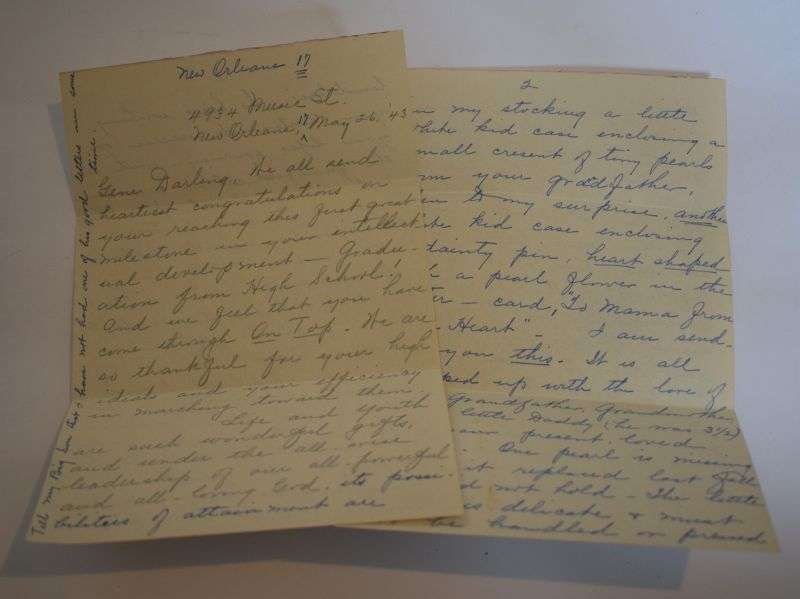 New Orleans 17
4934 Music St.
New Orleans, 17 May 26, '43
Gene Darling, We all send
heartiest congratulations on
your reaching this first great
milestone in your intellect
ual development — Gradu-
ation from High School!
And we feel that you have
come through On Top. We are
so thankful for your high
ideals and your efficiency
in marching toward them
Life and youth
are such wonderful gifts,
and under the all-wise
leadership of our all-powerful
and all-loving God, its possi-
bilities of attainment are
Tell my Boy I have not had one of his good letters in some
time.
2
my stocking a little
white kid case enclosing a
small cresent of tiny pearls
from your grandfather,
to my surprise, another
kid case enclosing
dainty pin, heart shaped
a pearl flower in the
— card, "To Mama from
Heart" - I am send-
you this. It is all
up with the love of
Grandfather, Grandmother,
little Daddy, (he was 3½)
present, loved
One pearl is missing
it replaced last
not hold - The little
is delicate & must
be handled or pressed